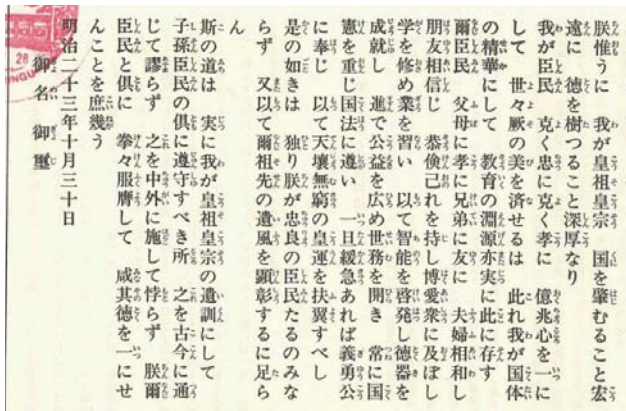 朕惟うに 我が皇祖皇宗 国を肇むること宏
遠に 徳を樹つること深厚なり
我が臣民 克く忠に克く孝に 億兆心を一に
して 世々厥の美を済せるは 此れ我が国体
の精華にして 教育の淵源亦実に此に存す
爾臣民 父母に孝に兄弟に友に 夫婦相和し
朋友相信じ 恭倹己れを持し博愛衆に及ぼし
学を修め業を習い 以て智能を啓発し徳器を
成就し 進で公益を広め世務を開き 常に国
憲を重じ国法に遵い 一旦緩急あれば義勇公
に奉じ 以て天壌無窮の皇運を扶翼すべし
是の如きは 独り朕が忠良の臣民たるのみな
らず 又以て爾祖先の遺風を顕彰するに足ら
ん
斯の道は 実に我が皇祖皇宗の遺訓にして
子孫臣民の俱に遵守すべき所 之を古今に通
じて謬らず 之を中外に施して悖らず 朕爾
臣民と俱に 拳々服膺して 咸其徳を一にせ
んことを庶幾う
明治二十三年十月三十日
御名御璽
28